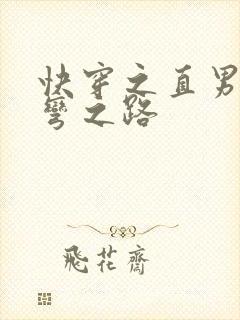 快穿之直男
弯之路
飛花齋